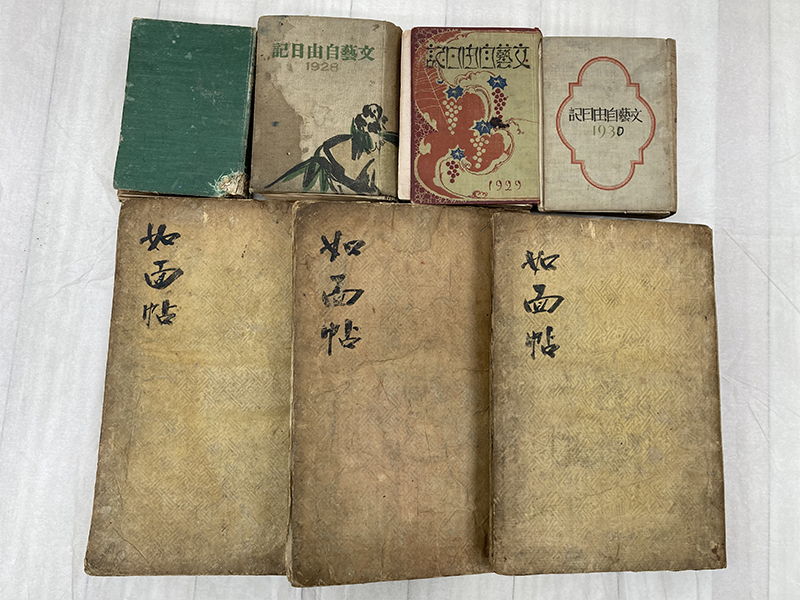 文藝自由日記
1928
文藝自由日記
1929
文藝自由日記
1930
如面帖
如面帖
如面帖